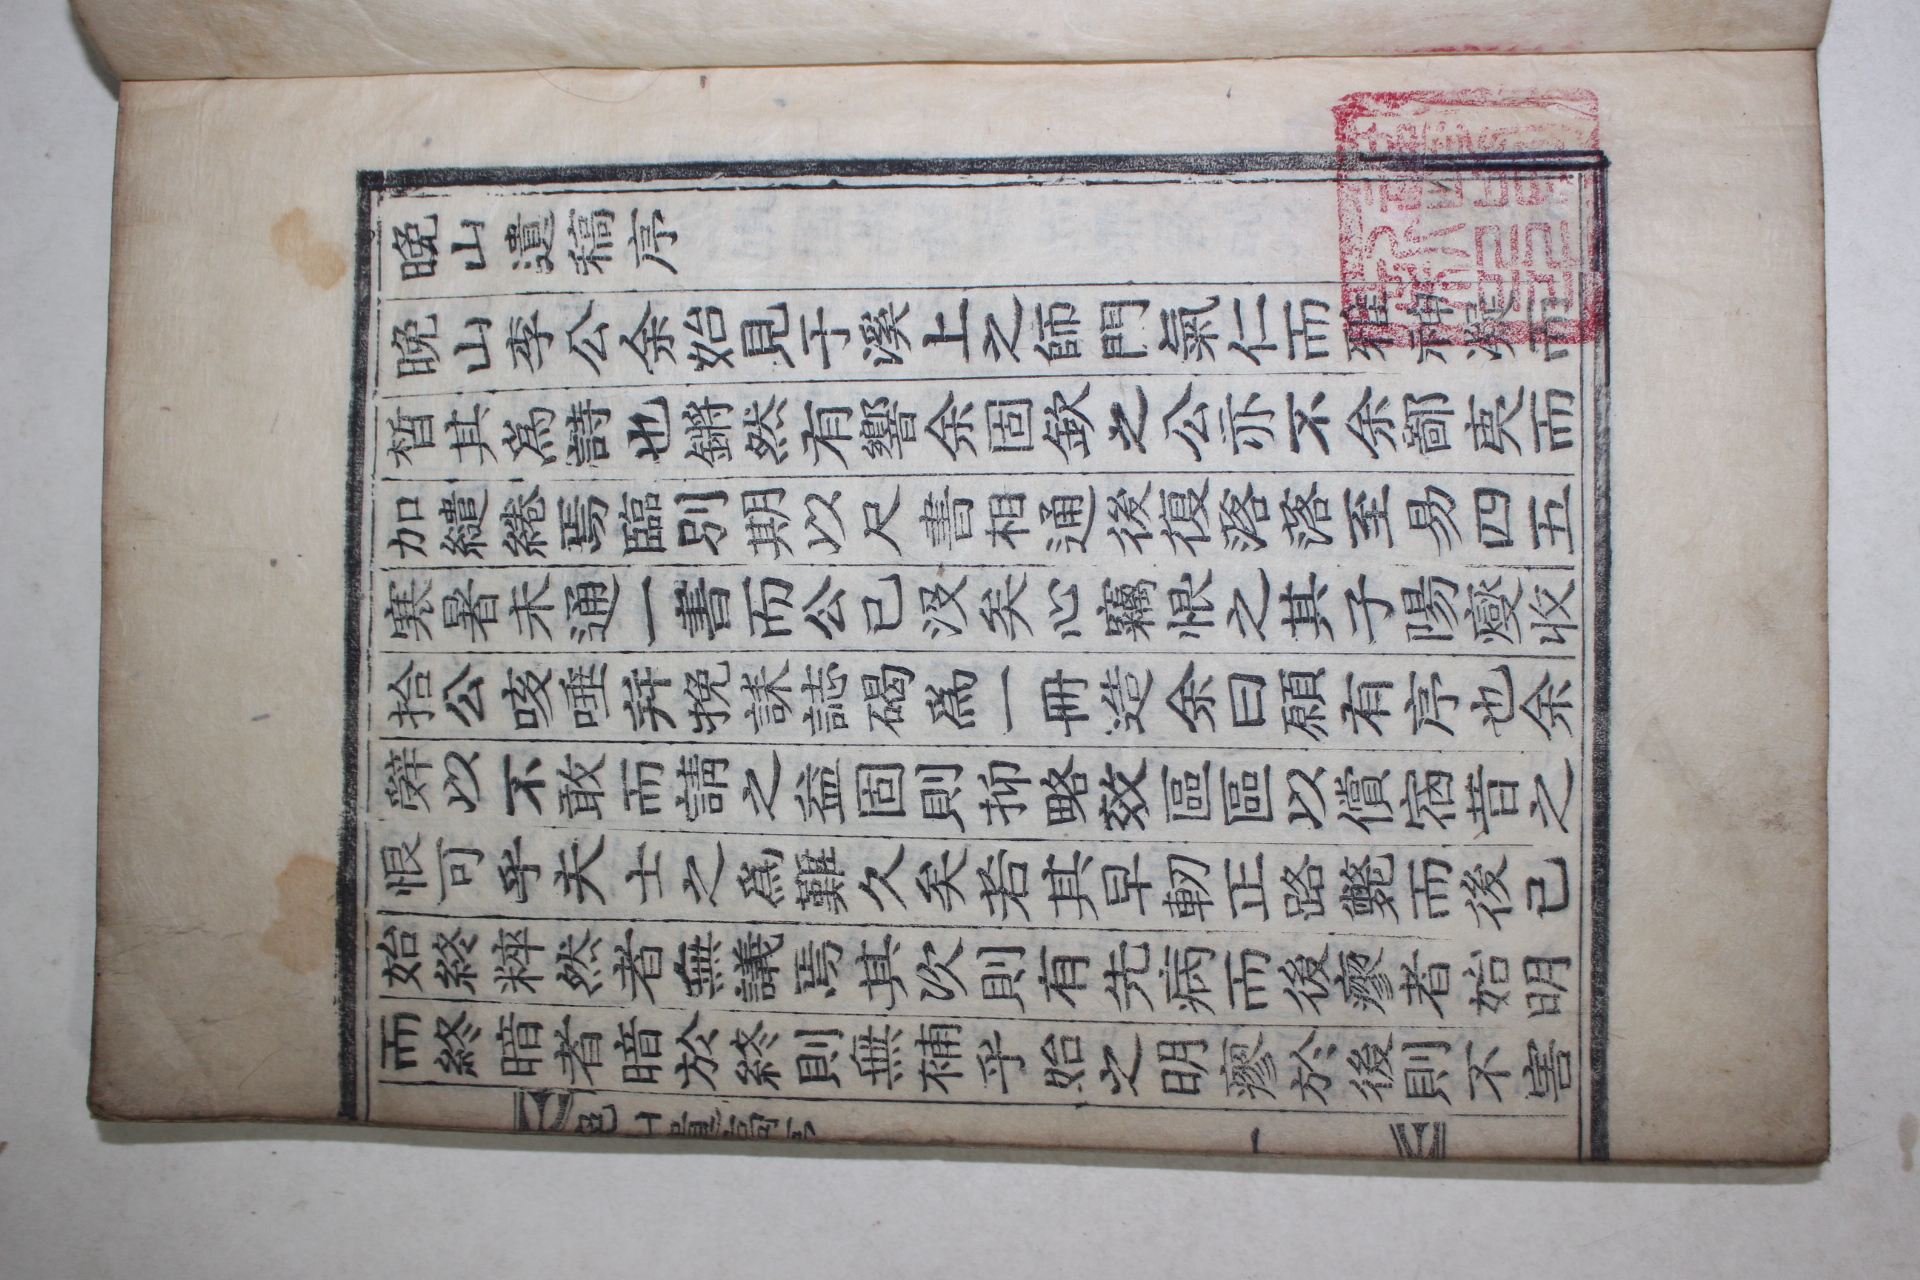 晩山遺稿序
晩山李公余始見于溪上之師門氣仁而雅神潔而
晳其爲詩也鏘然有響余固欽之公亦不余鄙夷而
加繾綣焉臨別期以尺書相通後復落落至易四五
寒暑未通一書而公已沒矣心竊恨之其子陽燮收
拾公咳唾幷挽誄誌碣爲一冊造余曰願有序也余
辭以不敢而請之益固則抑略效區區以償宿昔之
恨可乎夫士之爲難久矣若其早軔正路斃而後已
始終粹然者無議焉其次則有先病而後瘳者始明
而終暗者暗於終則無補乎始之明瘳於後則不害